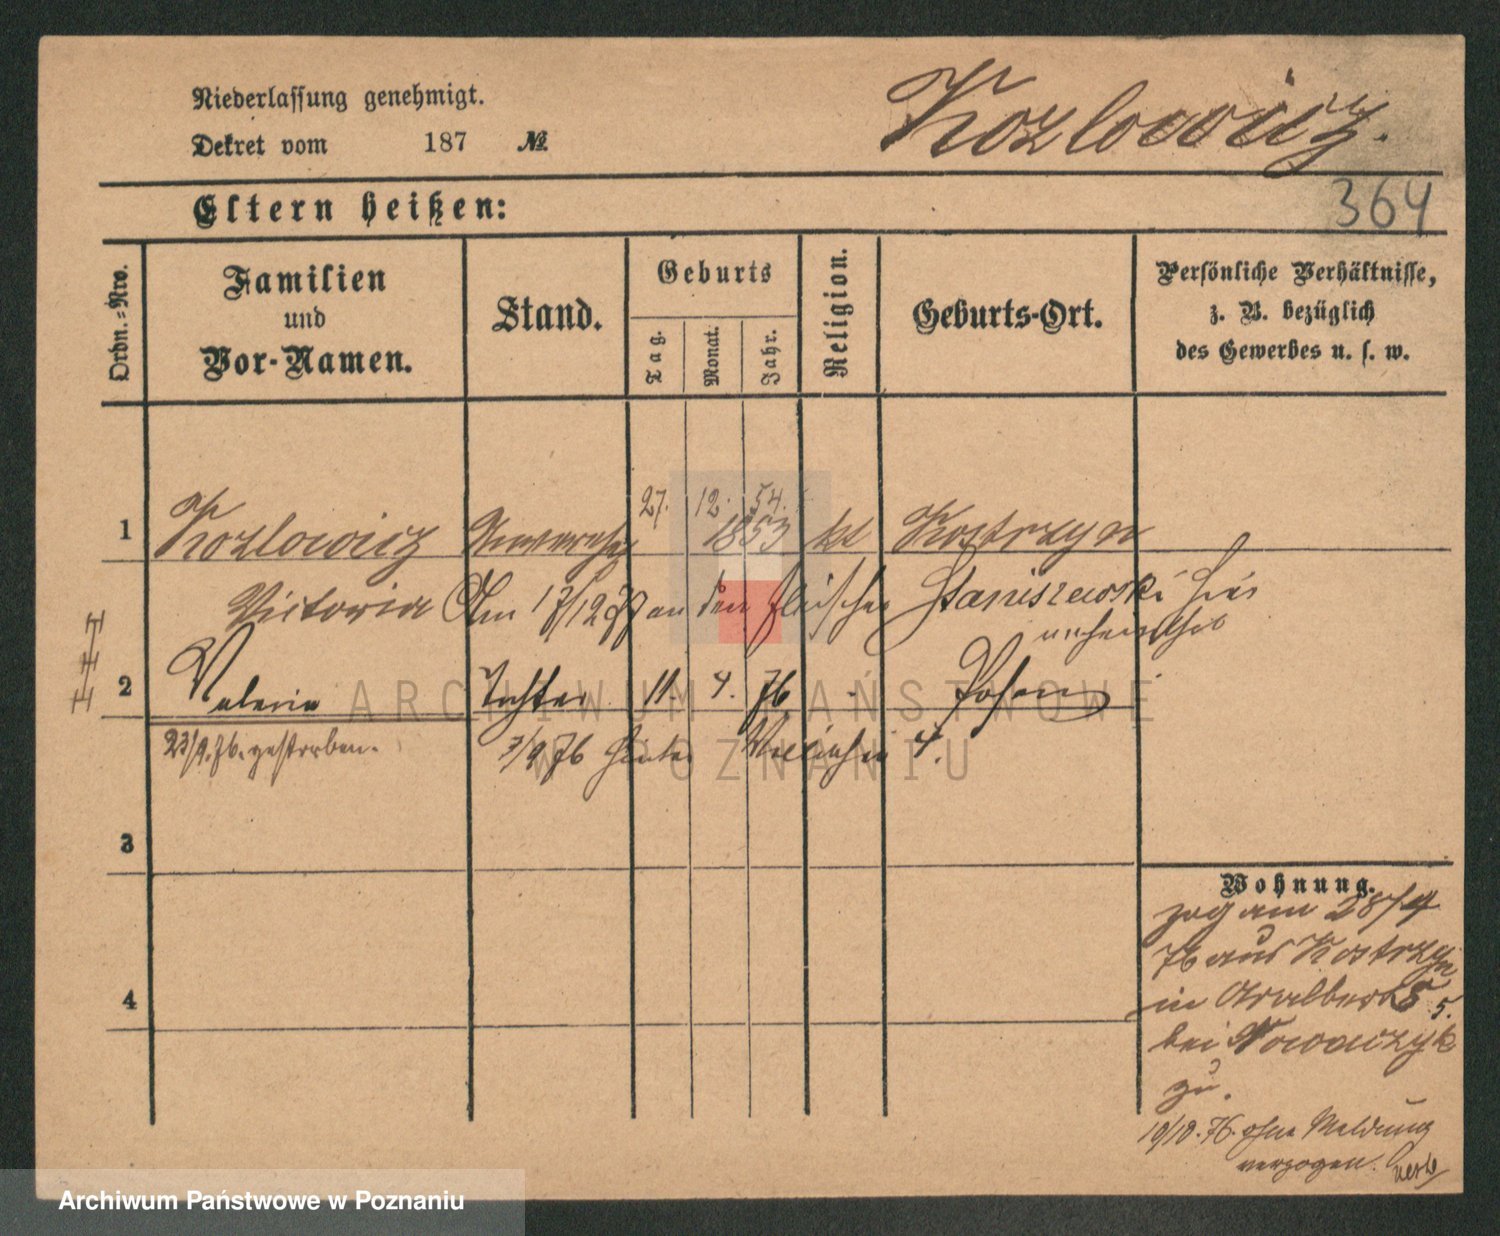 Niederlassung genehmigt.
Kozlowicz.
Dekret vom 187 №
364
Eltern heißen:
Ordn.-Nro.
Familien
und
Vor-Namen.
Stand.
Geburts
Tag.
Monat.
Jahr.
Religion.
Geburts-Ort.
Persönliche Verhältnisse,
z. B. bezüglich
des Gewerbes u. s. w.
27. 12. 54.
1 Kozlowicz 1853 kt Kostrzyn
Victoria Am 17/12 77 an den Fleischer Staniszewski hier
2 Valeria Tochter 11. 4. 76 Posen
23/9. 76. gestorben. 3/9 76 hinter Wallischei 4.
3
4
Wohnung.
zog am 28/4
76 aus Kostrzyn
in 5.
bei Nowaczyk
zu.
10/10. 76. ohne Meldung
verzogen.
ARCHIWUM PAŃSTWOWE
W POZNANIU
Archiwum Państwowe w Poznaniu